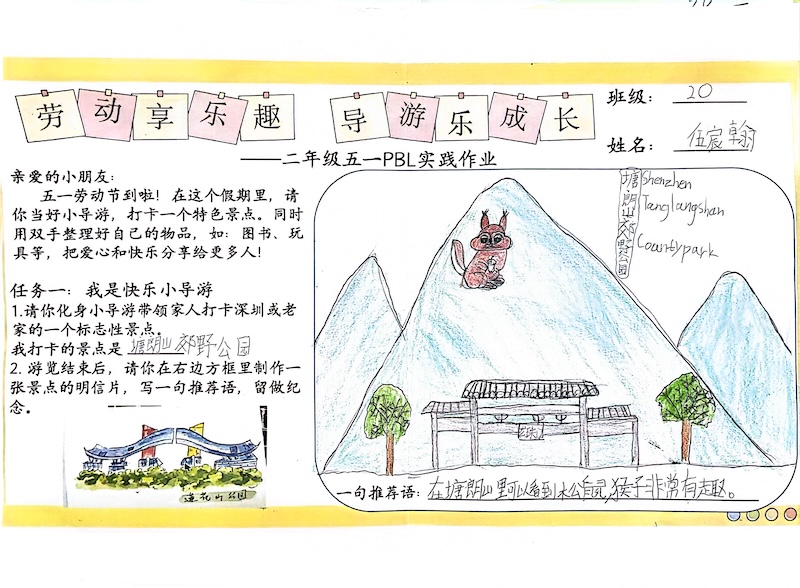 劳动享乐趣 导游乐成长
班级: 20
姓名: 伍宸翰
——二年级五一PBL实践作业
亲爱的小朋友:
五一劳动节到啦!在这个假期里,请
你当好小导游,打卡一个特色景点。同时
用双手整理好自己的物品,如:图书、玩
具等,把爱心和快乐分享给更多人!
任务一:我是快乐小导游
1.请你化身小导游带领家人打卡深圳或老
家的一个标志性景点。
我打卡的景点是 塘朗山郊野公园
2.游览结束后,请你在右边方框里制作一
张景点的明信片,写一句推荐语,留做纪
念。
莲花山公园
塘朗山郊野公园
Shenzhen
Tanglangshan
Countypark
一句推荐语:在塘朗山里可以看到松鼠,猴子非常有趣。